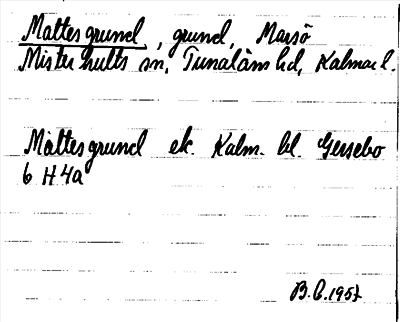 Mattesgrund, grund, Marsö
Misterhults sn, Tunaläns hd, Kalmar l.
Mattesgrund ek. Kalm. bl. Gersebo
6 H 4a
B.C. 1957